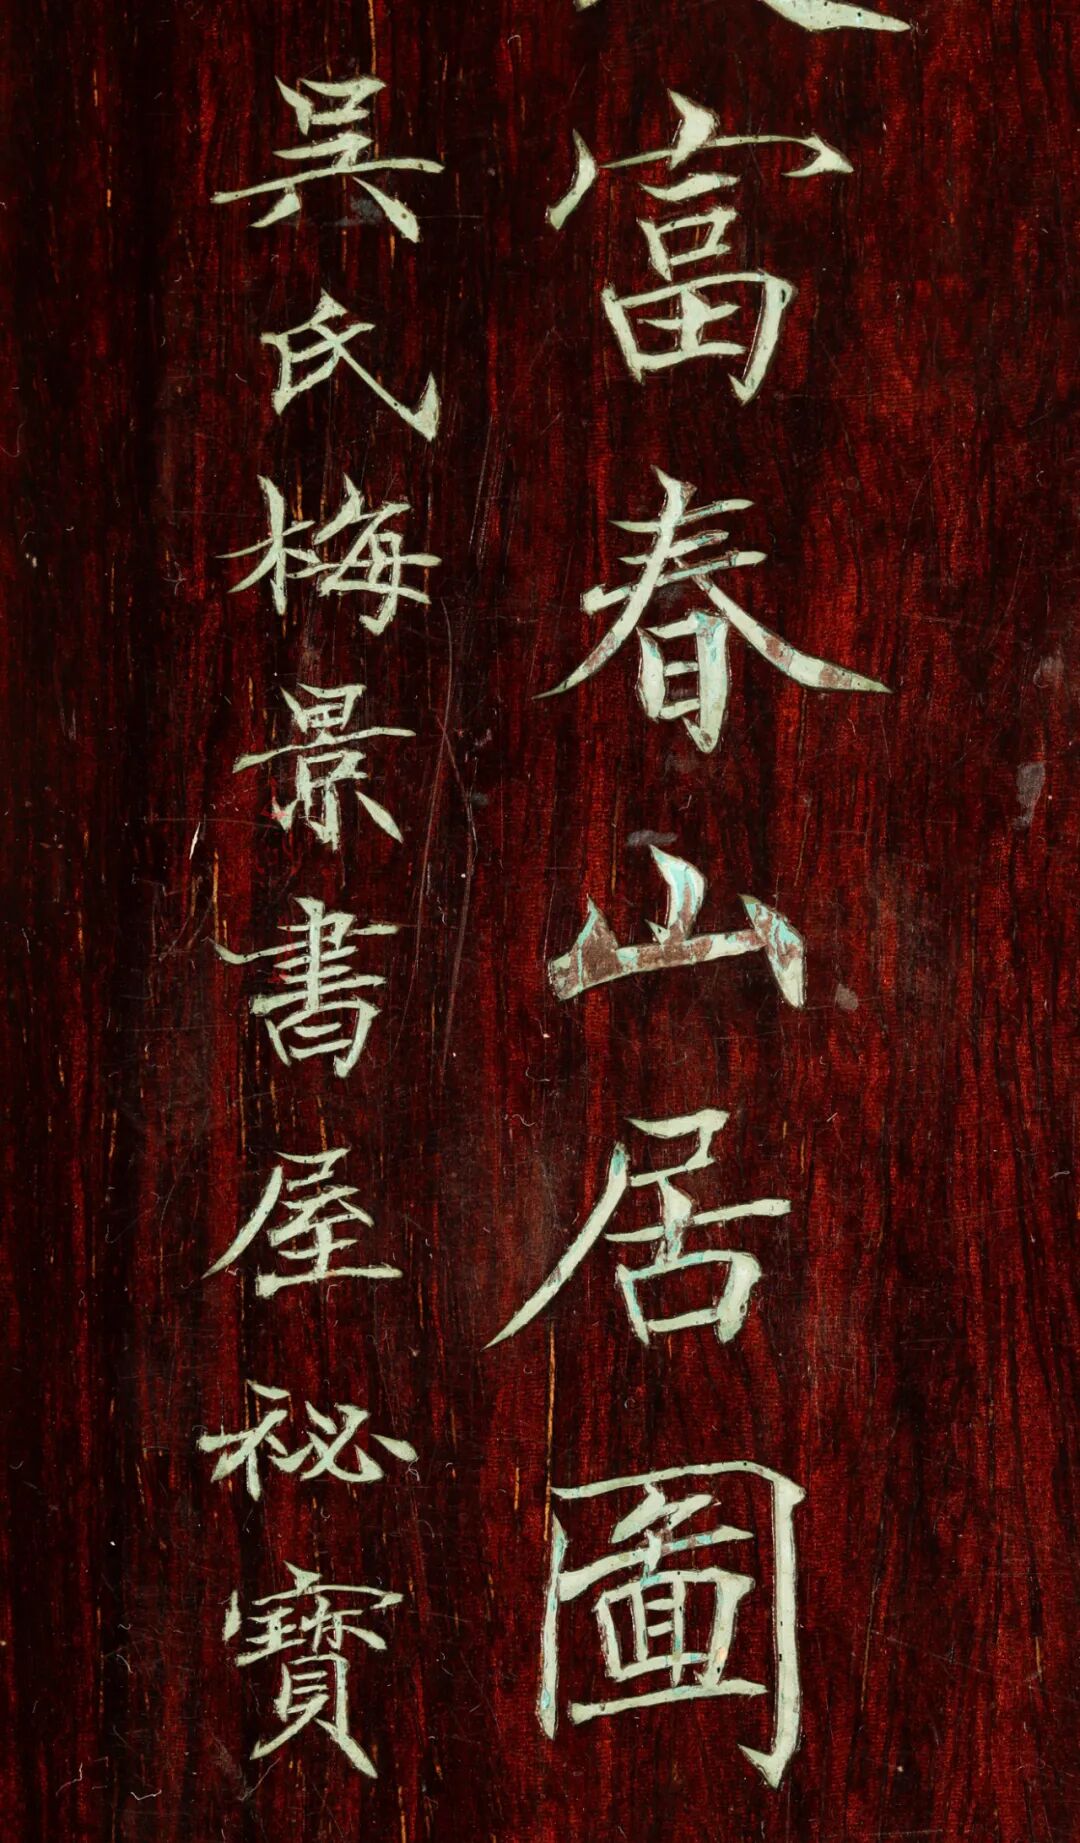 富春山居圖
吳氏梅景書屋秘寶